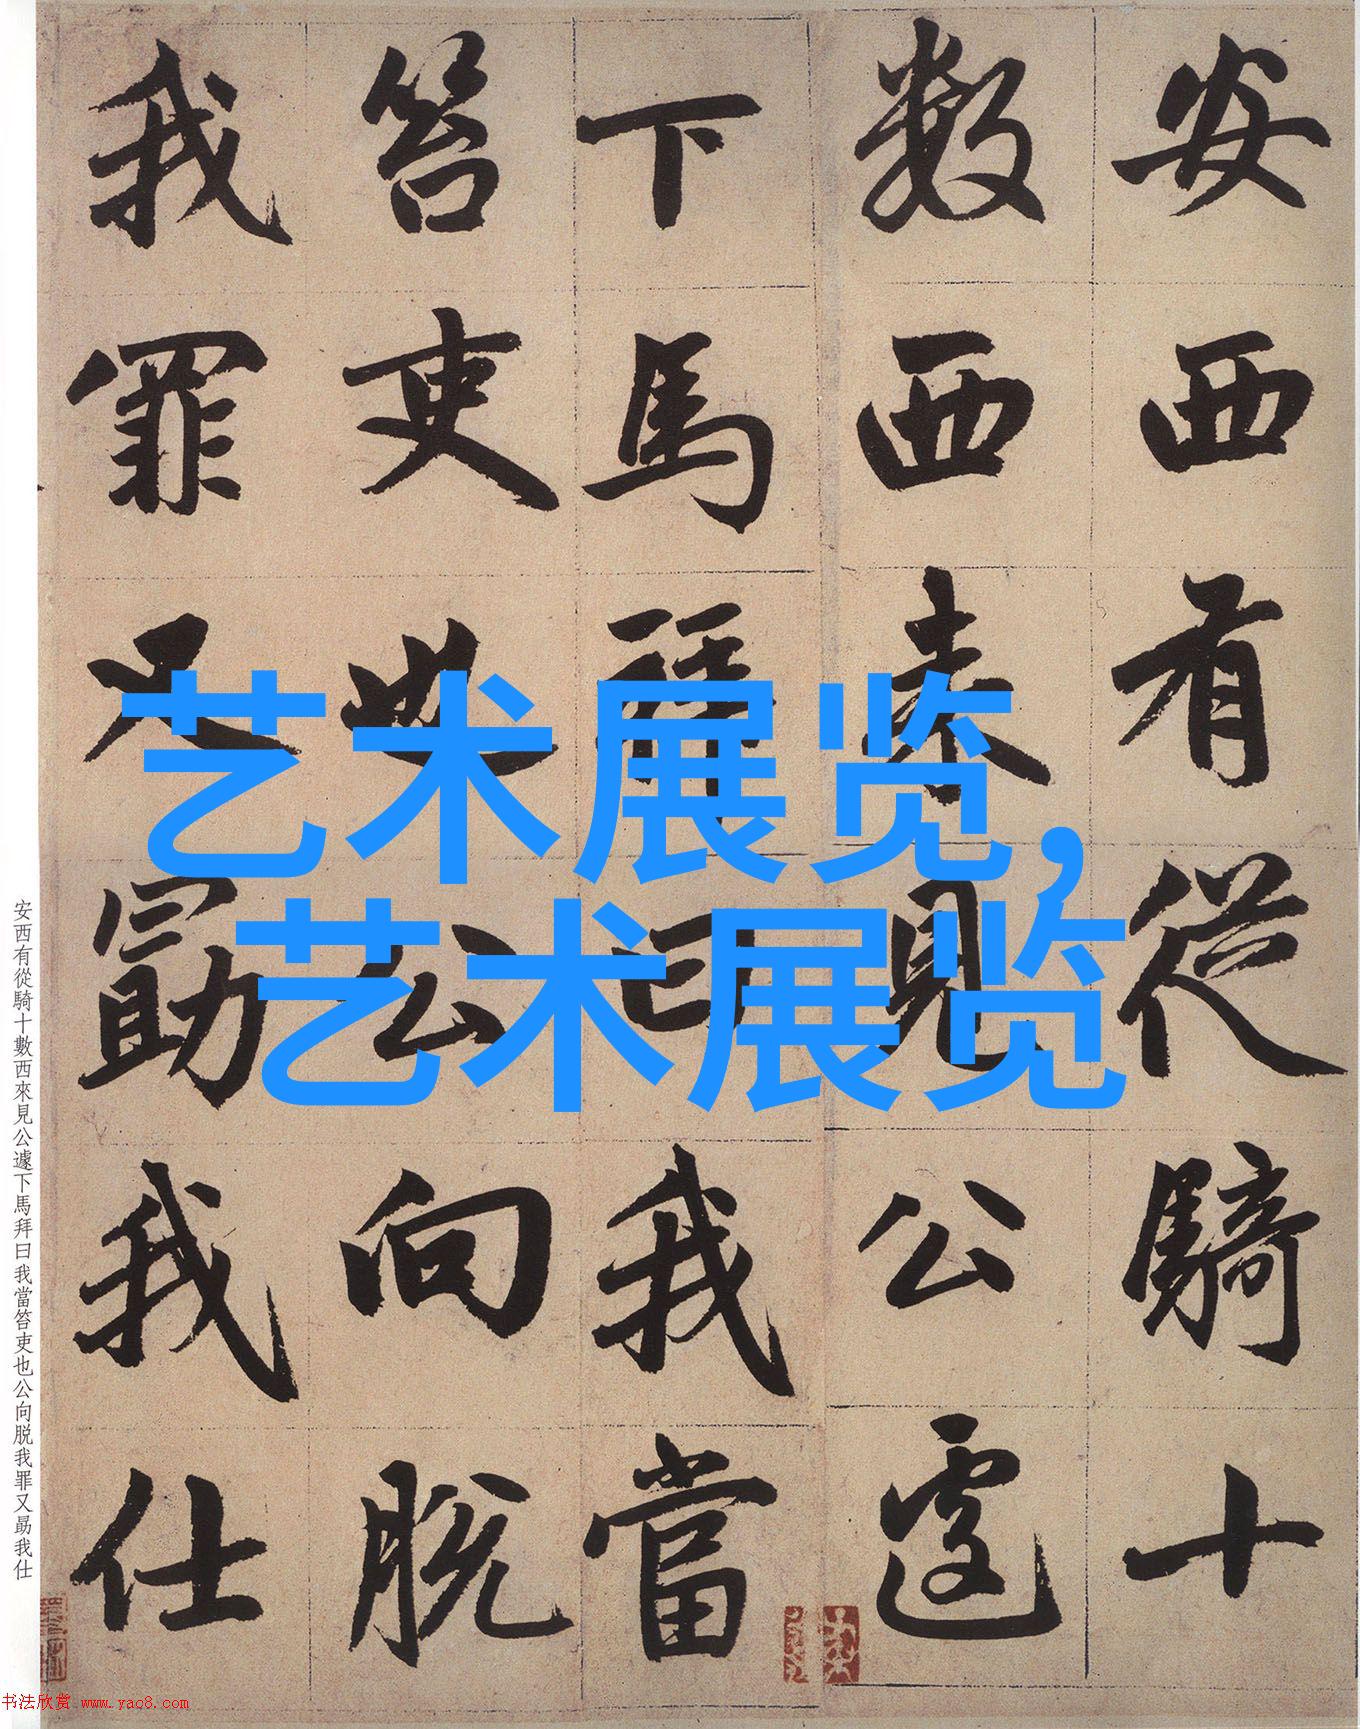 安西有從騎十
數西来見公遽
下馬拜曰我當
笞吏也公向脱
我罪又勗我仕
艺术展览,
艺术展览
安西有從騎十數西來見公遽下馬拜曰我當笞吏也公向脱我罪又勗我仕
书法欣赏 www.yac8.com